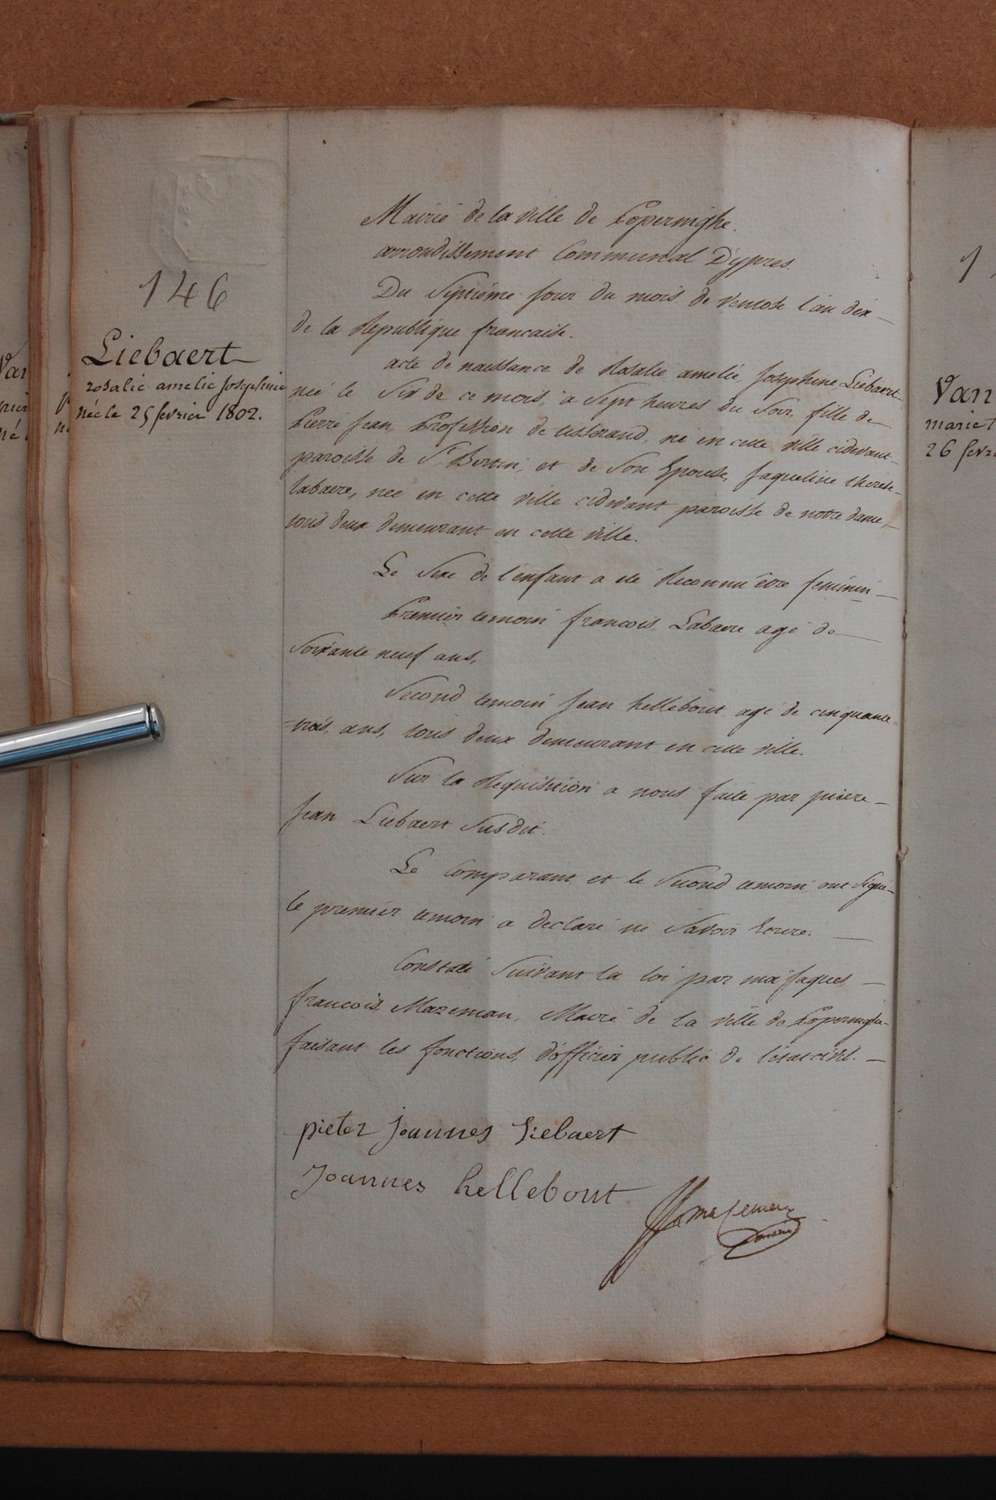 146
Liebaert
rosalie amelie Josephine
née le 25 fevrier 1802.
Mairie de la ville de Poperinghe.
arrondissement Communal D'ypres
Du Septiéme jour du mois de ventose l'an dix
de la Republique francaise.
acte de naissance de Rosalie amelie Josephine Liebaert
née le Six de ce mois, à Sept heures du Soir, fille de
Pierre Jean, Profession de tisserand, né en cette ville cidevant
paroisse de St Bertin, et de Son Epouse, Jaqueline therese
labaere, née en cette ville cidevant paroisse de notre dame,
tous deux demeurant en cette ville.
Le Sexe de l'enfant a été Reconnu être feminin
Premier temoin francois Labaere agé de
Soixante neuf ans,
Second temoin Jean hellebout agé de cinquante
trois ans, tous deux demeurant en cette ville.
Sur la Réquisition a nous faite par pierre
Jean Liebaert Susdit.
Le Comparant et le Second temoin ont Signé
le premier temoin a declaré ne Savoir Ecrire.
Constaté Suivant la loi par moi Jaques
francois Mazeman, Maire de la ville de Poperinghe
faisant les fonctions d'officier public de l'état civil.
pieter joannes Liebaert
Joannes hellebout
Van
marie
26 fevri